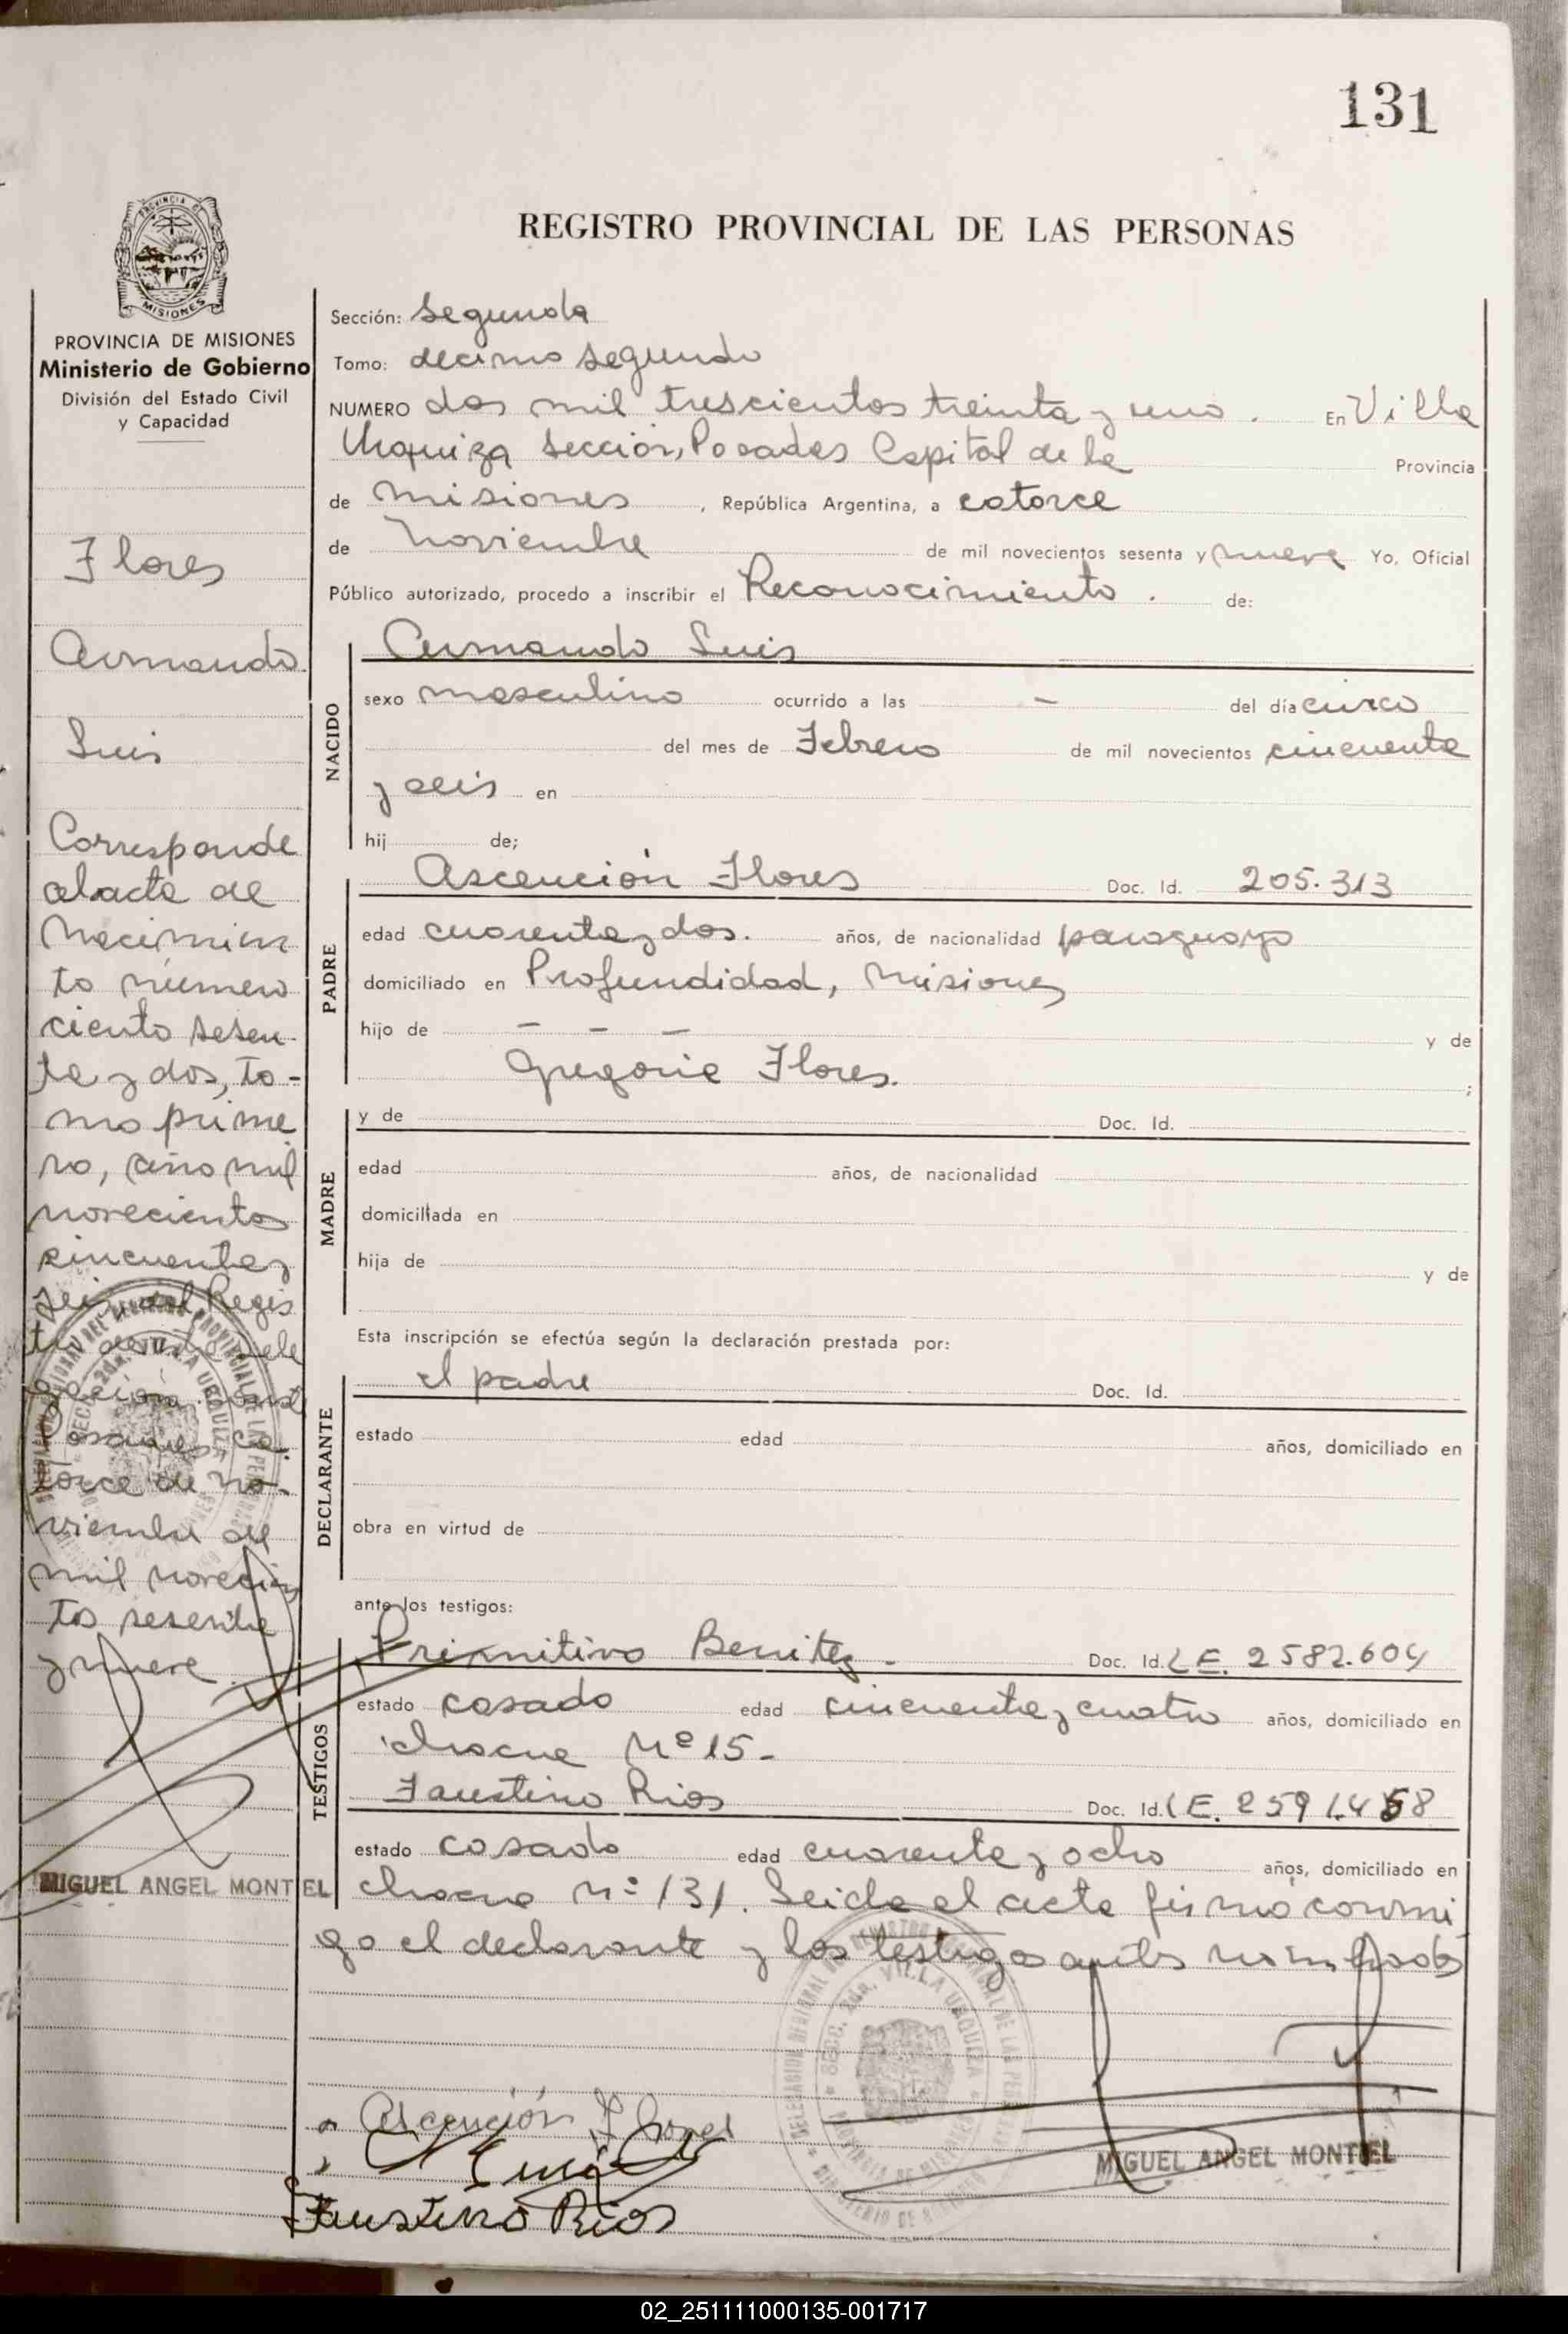 131
REGISTRO PROVINCIAL DE LAS PERSONAS
PROVINCIA DE
MISIONES
PROVINCIA DE MISIONES
Ministerio de Gobierno
División del Estado Civil
y Capacidad
Flores
Armando
Luis
Corresponde
al acta de
Nacimien
to número
ciento sesen-
ta y dos, to-
mo prime
ro, año mil
novecientos
cincuenta y
seis del Regis
tro
Posadas, ca
torce de no-
viembre de
mil novecien
tos sesenta
y nueve
MIGUEL ANGEL MONTIEL
Sección: Segunda
Tomo: décimo segundo
NUMERO dos mil trescientos treinta y uno. En Villa
Urquiza Sección, Posadas Capital de la Provincia
de Misiones, República Argentina, a catorce
de Noviembre de mil novecientos sesenta y nueve Yo, Oficial
Público autorizado, procedo a inscribir el Reconocimiento. de:
NACIDO
Armando Luis
sexo masculino ocurrido a las - del día cinco
del mes de Febrero de mil novecientos cincuenta
y seis en
hij de;
PADRE
Ascención Flores Doc. Id. 205.313
edad cuarenta y dos. años, de nacionalidad paraguayo
domiciliado en Profundidad, Misiones
hijo de - - - y de
Gregoria Flores. ;
MADRE
y de Doc. Id.
edad años, de nacionalidad
domiciliada en
hija de y de
Esta inscripción se efectúa según la declaración prestada por:
DECLARANTE
el padre Doc. Id.
estado edad años, domiciliado en
obra en virtud de
ante los testigos:
TESTIGOS
Primitivo Benitez. Doc. Id. LE. 2582.604
estado casado edad cincuenta y cuatro años, domiciliado en
chacra Nº 15-
Faustino Rios Doc. Id. LE. 2591.458
estado casado edad cuarenta y ocho años, domiciliado en
chacra nº 131. Leida el acta firma conmi
go el declarante y los testigos antes nombrados
Ascención Flores
Faustino Rios
MIGUEL ANGEL MONTIEL
02_251111000135-001717